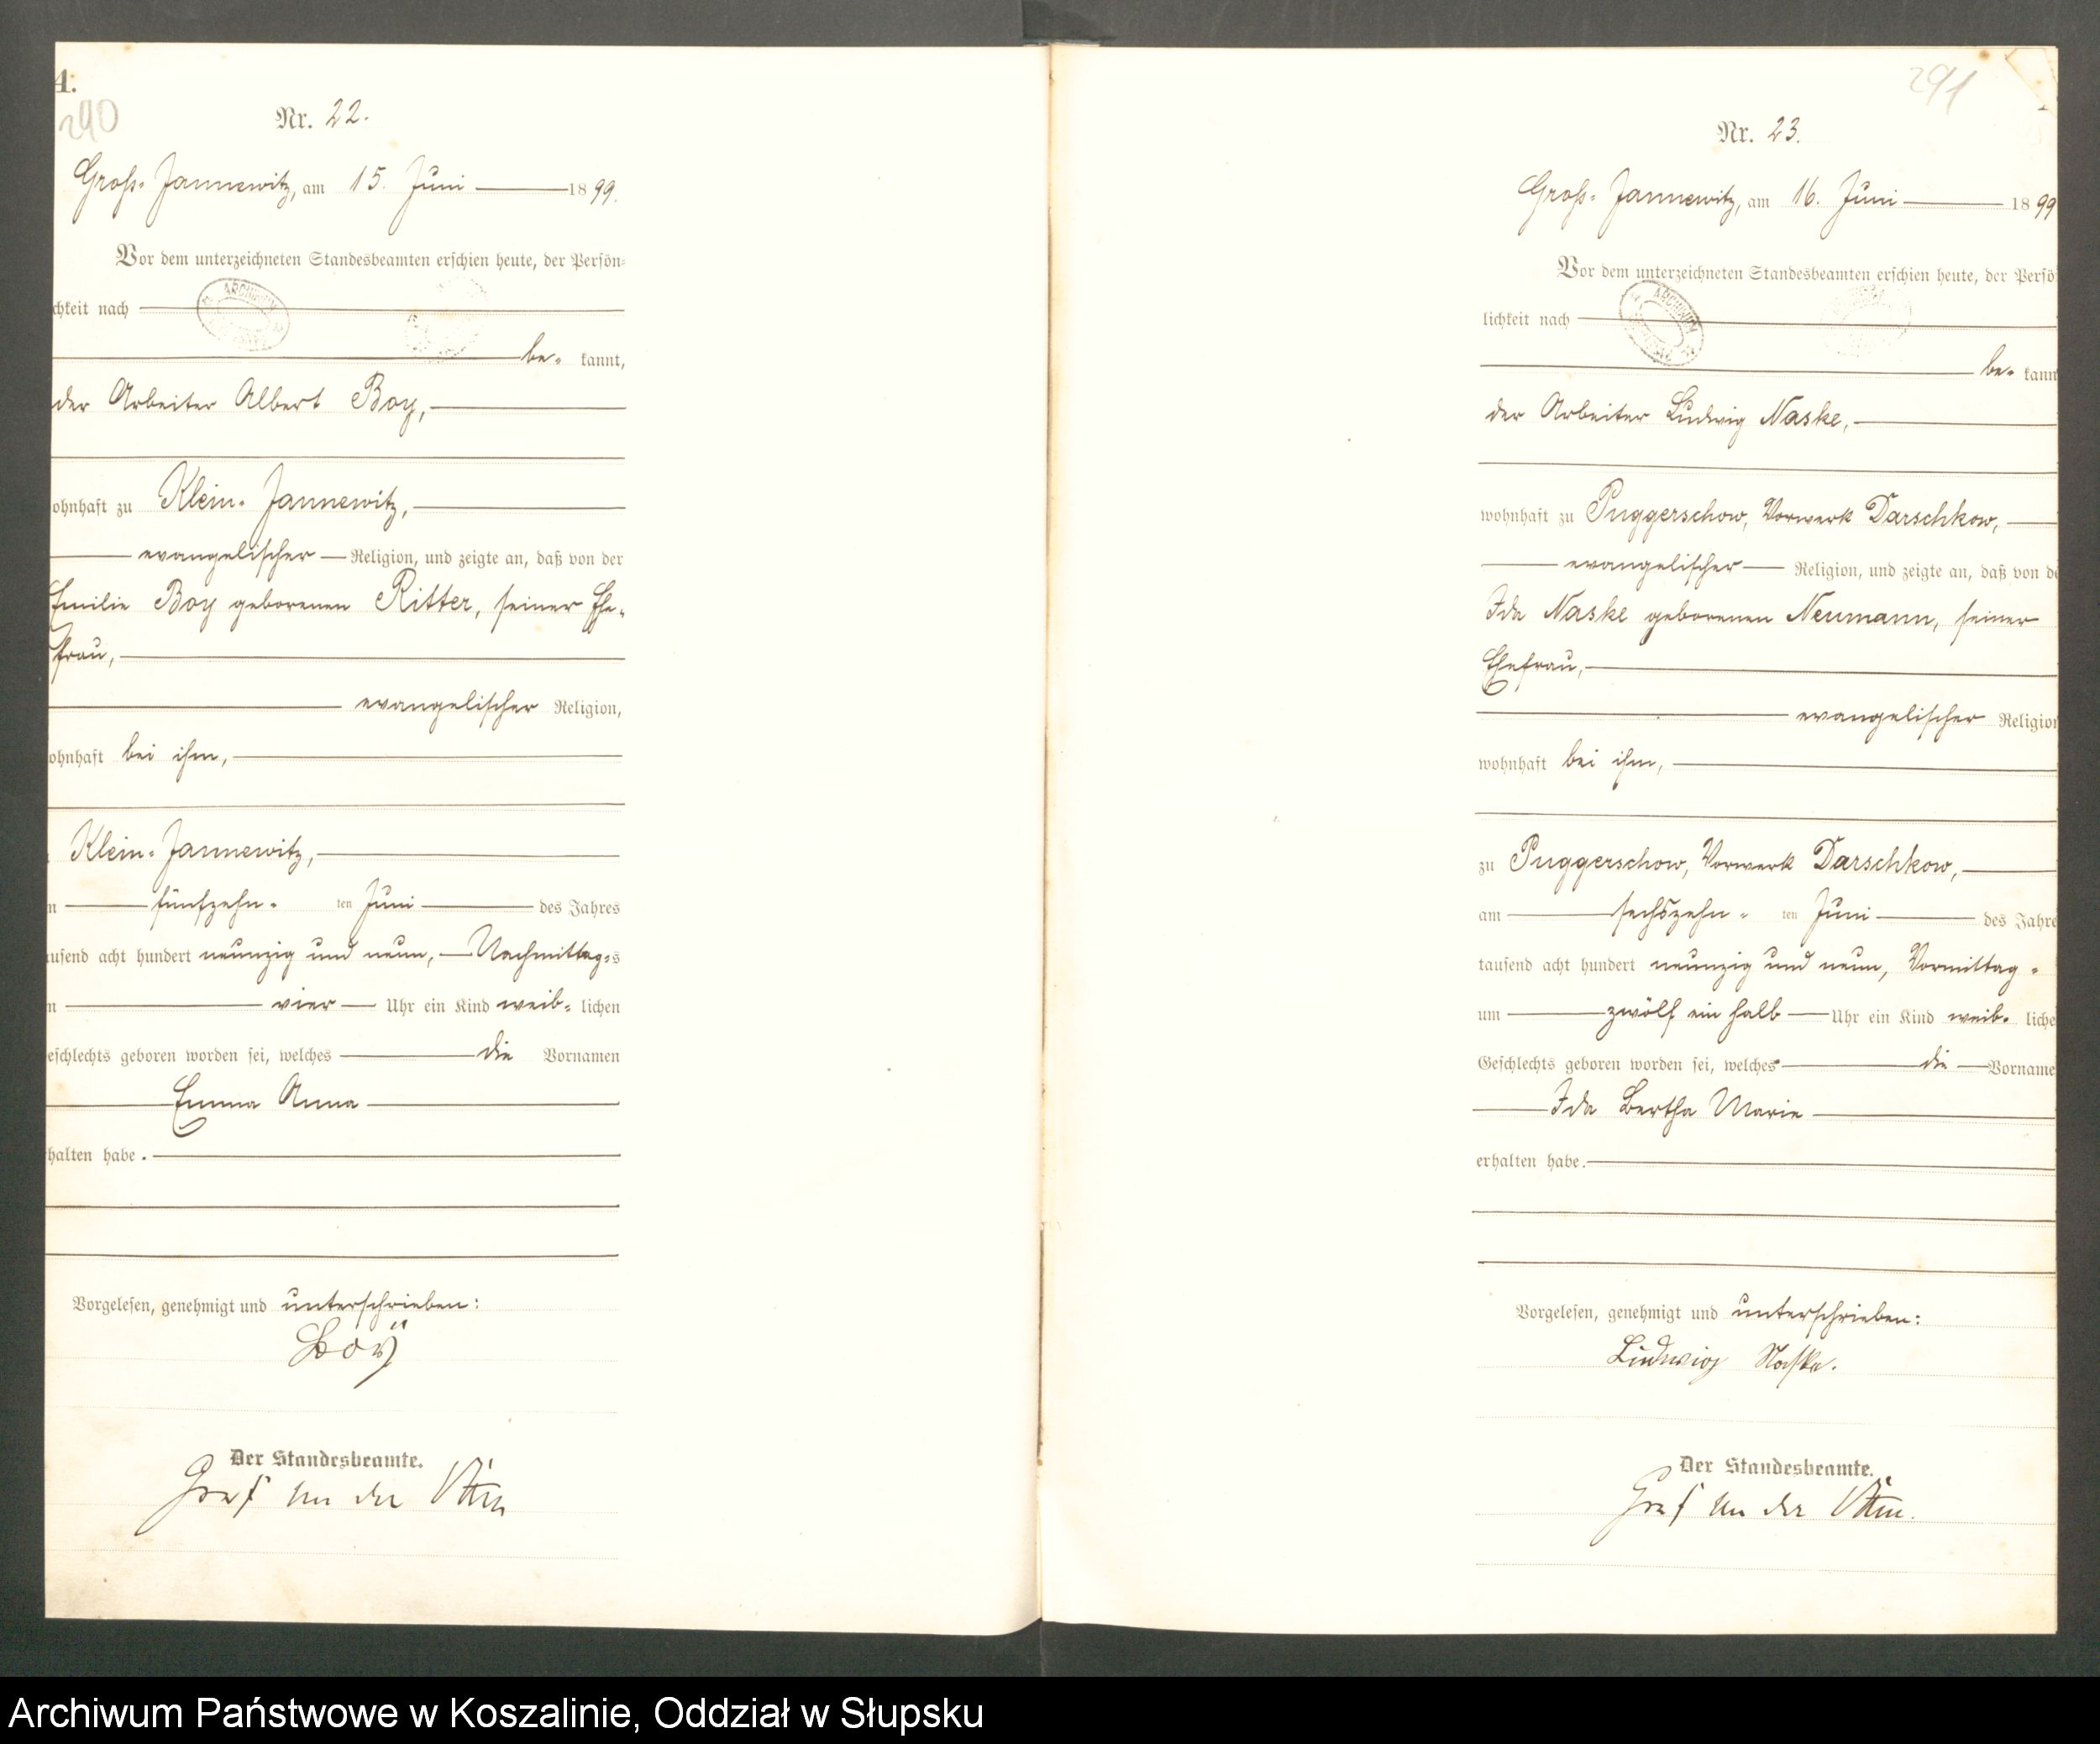 4.
290
Nr. 22.
Groß-Jannewitz, am 15. Juni 1899.
Vor dem unterzeichneten Standesbeamten erschien heute, der Persön-
chkeit nach
be- kannt,
der Arbeiter Albert Boy,
ohnhaft zu Klein-Jannewitz,
evangelischer Religion, und zeigte an, daß von der
Emilie Boy geborenen Ritter, seiner Ehe-
frau,
evangelischer Religion,
ohnhaft bei ihm,
Klein-Jannewitz,
fünfzehn-ten Juni des Jahres
usend acht hundert neunzig und neun, Nachmittag-s
vier Uhr ein Kind weib-lichen
eschlechts geboren worden sei, welches die Vornamen
Emma Anna
halten habe.
Vorgelesen, genehmigt und unterschrieben:
Boÿ
Der Standesbeamte.
Graf von der
ARCHIWUM
291
Nr. 23.
Groß-Jannewitz, am 16. Juni 1899
Vor dem unterzeichneten Standesbeamten erschien heute, der Persö
lichkeit nach
be- kann
der Arbeiter Ludwig Naske,
wohnhaft zu Puggerschow, Vorwerk Darschkow,
evangelischer Religion, und zeigte an, daß von de
Ida Naske geborenen Neumann, seiner
Ehefrau,
evangelischer Religion
wohnhaft bei ihm,
zu Puggerschow, Vorwerk Darschkow,
am sechszehn-ten Juni des Jahre
tausend acht hundert neunzig und neun, Vormittag-
um zwölf ein halb Uhr ein Kind weib-liche
Geschlechts geboren worden sei, welches die Vorname
Ida Bertha Marie
erhalten habe.
Vorgelesen, genehmigt und unterschrieben:
Ludwig Naske.
Der Standesbeamte.
Graf von der
ARCHIWUM
Archiwum Państwowe w Koszalinie, Oddział w Słupsku